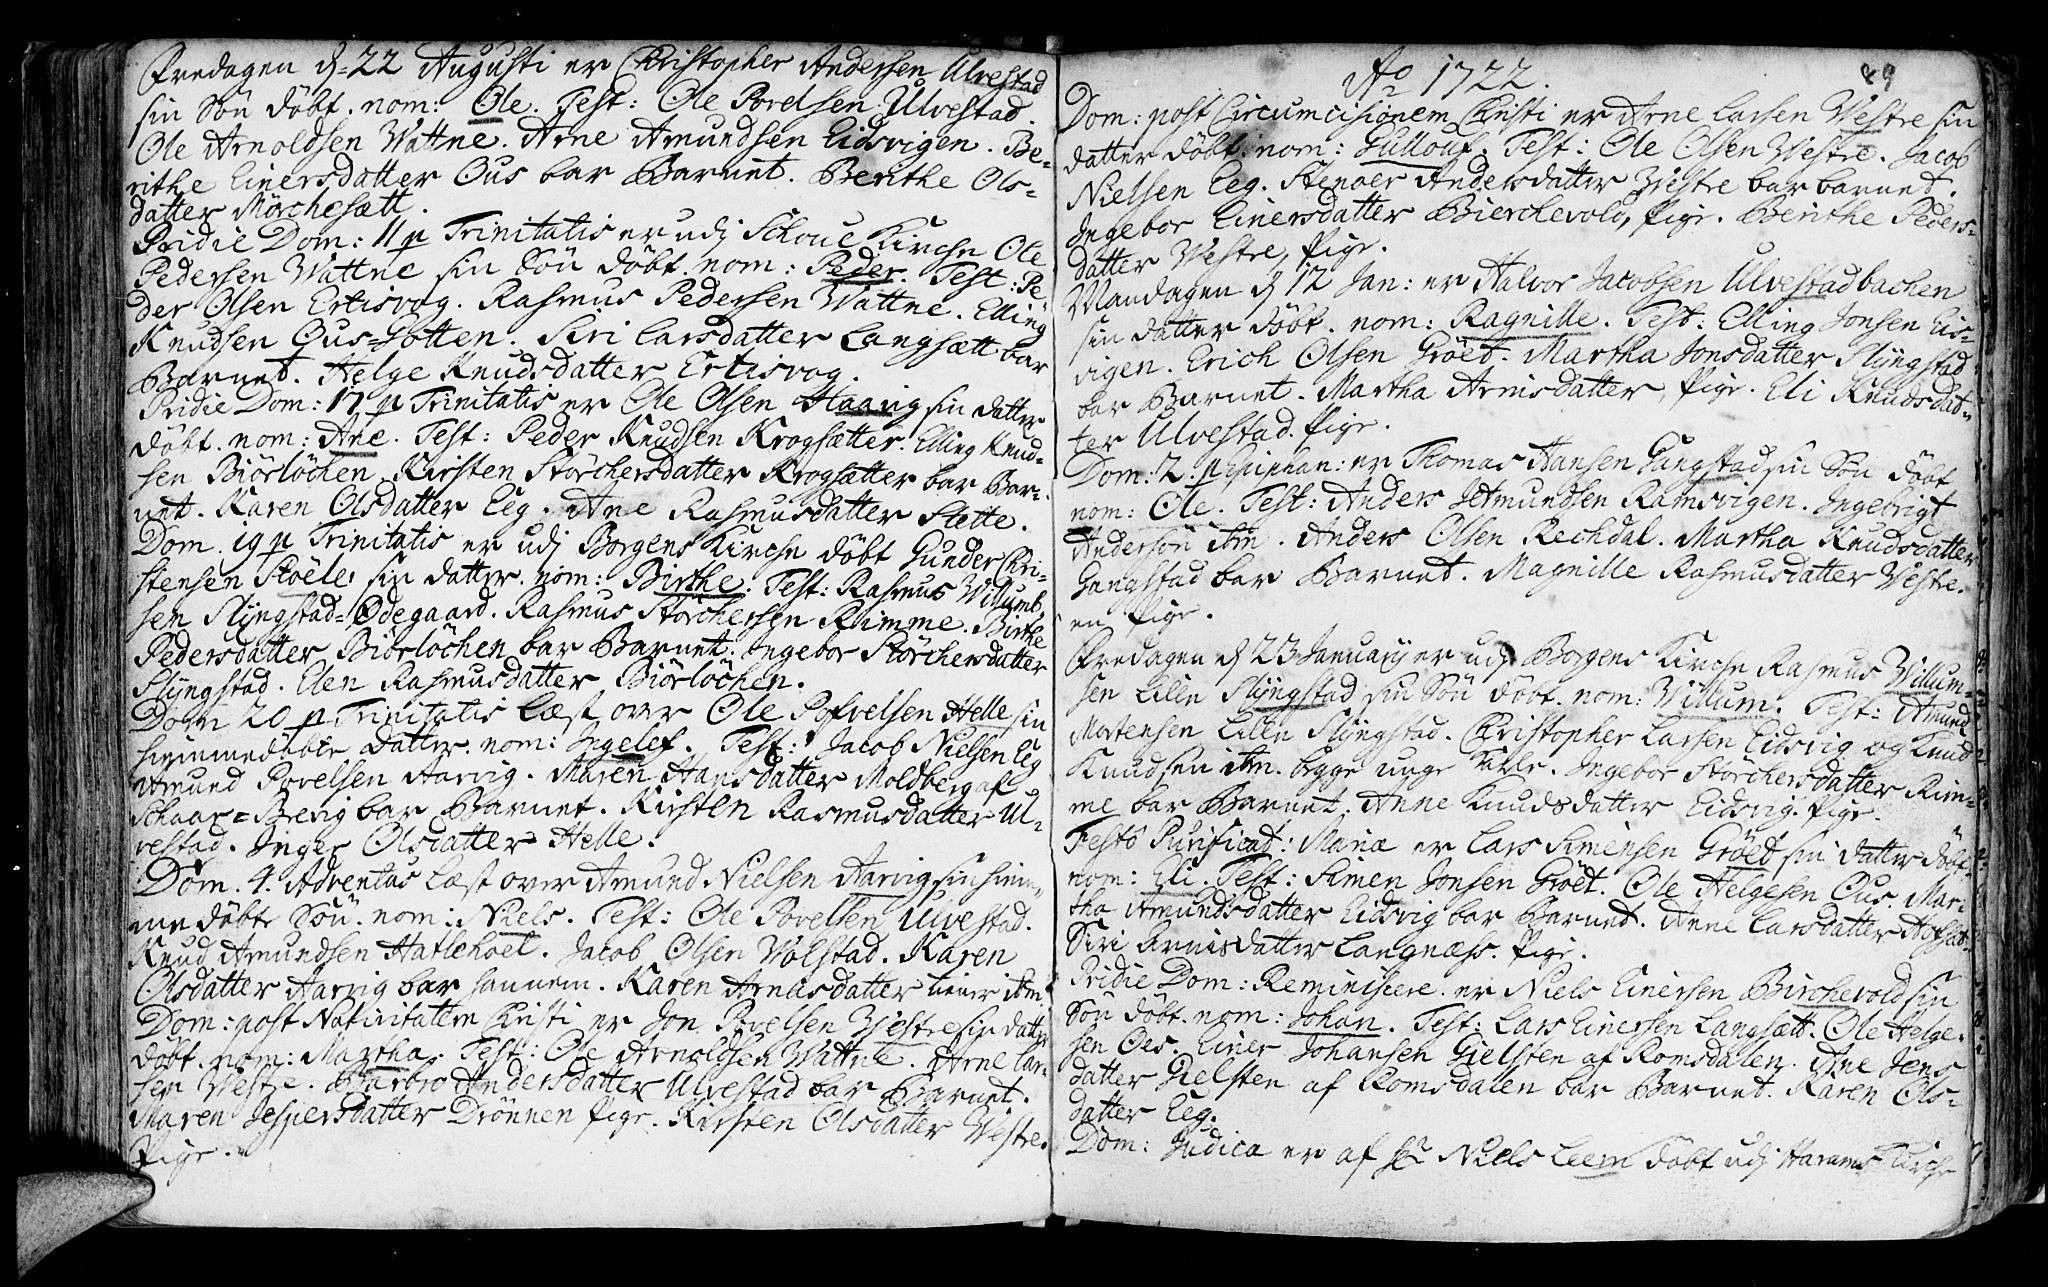 Fredagen d. 22 Augusti er Christopher Andersen Ulvestad
sin Sön döbt. nom: Ole. Test: Ole Povelsen Ulvestad.
Ole Arnoldsen Wattne. Arne Amundsen Eidsvigen. Be-
rithe Einersdatter Ous bar Barnet. Berithe Ols-
datter Mörchesætt.
Pridie Dom: 11 p Trinitatis er udj Schoue Kirche Ole
Pedersen Wattne sin Sön döbt. nom: Peder. Test: Pe-
der Olsen Ertisvog. Rasmus Pedersen Wattne. Elling
Knudsen Ous=Hotten. Siri Larsdatter Langsætt bar
Barnet. Helge Knudsdatter Ertisvog.
Pridie Dom: 17 p Trinitatis er Ole Olsen Haavig sin datter
döbt. nom: Ane. Test: Peder Knudsen Krogsætter. Elling Knud-
sen Biörlöchen. Kirsten Störchersdatter Krogsætter bar Bar-
net. Karen Olsdatter Eeg. Ane Rasmusdatter Stette.
Dom. 19 p Trinitatis er udj Borgens Kirche döbt Gunder Chri-
stensen Stoële sin datter. nom: Birthe. Test: Rasmus Willumb-
sen Slÿngstad=Ödegaard. Rasmus Störchersen Rimme. Birthe
Pedersdatter Biörlöchen bar Barnet. Ingebor Störchersdatter
Slÿngstad. Elen Rasmusdatter Biörlöchen.
Dom 20 p Trinitatis læst over Ole Pofvelsen Helle sin
hiemmedöbte datter. nom: Ingelef. Test: Jacob Nielsen Eeg
Amund Povelsen Aarvig. Maren Hansdatter Moldberg af
Schaar=Brevig bar Barnet. Kirsten Rasmusdatter Ul-
vestad. Inger Olsdatter Helle.
Dom. 4. Adventus læst over Amund Nielsen Aarvig sin hiem-
me döbte Sön. nom: Niels. Test: Ole Povelsen Ulvestad.
Knud Amundsen Hatlehoel. Jacob Olsen Wölstad. Karen
Olsdatter Aarvig bar hannem. Karen Arnesdatter tiener ibm.
Dom: post Nativitatem Christi er Jon Povelsen Westre sin datter
döbt. nom: Martha. Test: Ole Arnoldsen Wattne. Arne Lar-
sen Westre. Barbro Andersdatter Ulvestad bar Barnet.
Maren Jespersdatter Drönnen Pige. Kirsten Olsdatter Westre.
Pige.
Ao 1722.
89
Dom: post Circumcisionem Christi er Arne Larsen Westre sin
datter döbt. nom: Gullouf. Test: Ole Olsen Westre. Jacob
Nielsen Eeg. Stenoer Andersdatter Westre bar barnet.
Ingebor Einersdatter Bierchevold, Pige. Berithe Peders-
datter Westre, Pige.
Mandagen d 12 Jan: er Halvor Jacobsen Ulvestadbachen
sin datter döbt. nom: Ragnille. Test: Elling Jonsen Eis-
vigen. Erich Olsen Gröet. Martha Jonsdatter Slÿngstad
bar Barnet. Martha Arnisdatter, Pige. Eli Knudsdat-
ter Ulvestad. Pige.
Dom: 2. p Epiphan: er Thomas Hansen Gangstad sin Sön döbt
nom: Ole. Test: Anders Jetmundsen Ramsvigen. Ingebrigt
Anderson ibm. Anders Olsen Rechdal. Martha Knudsdatter
Gangstad bar Barnet. Magnille Rasmusdatter Westre.
en Pige.
Fredagen d 23 Januarij er udj Borgens Kirche Rasmus Willum-
sen Lille Slÿngstad sin Sön döbt. nom: Willum. Test: Amund
Mortensen Lille Slÿngstad. Christopher Larsen Eidsvig og Knud
Knudsen ibm. begge unge Karle. Ingebor Störchersdatter Rim-
me bar Barnet. Anne Knudsdatter Eidsvig. Pige.
Festo Purificat: Mariæ er Lars Simensen Gröet sin datter döbt.
nom: Eli. Test: Simen Jonsen Gröet. Ole Helgesen Ous. Mar-
tha Amundsdatter Eidsvig bar Barnet. Anne Larsdatter Hofsæt.
Siri Arnisdatter Langnæss. Pige.
Pridie Dom: Reminiscere. er Niels Einersen Birchevold sin
Sön döbt. nom: Johan. Test: Lars Einersen Langsætt. Ole Helge-
sen Oes. Einer Johansen Gielsten af Romsdalen. Ane Jens
datter Gielsten af Romsdalen bar Barnet. Karen Ols-
datter Eeg.
Dom: Judica er af Niels Leem döbt udj Harams Kirche